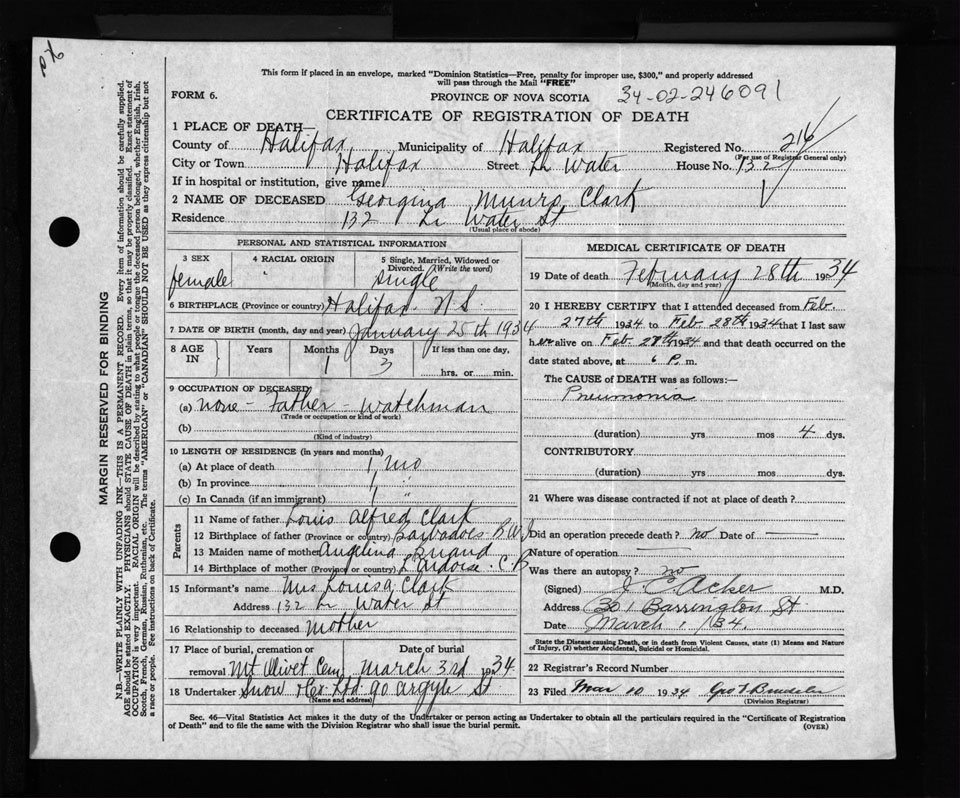 This form if placed in an envelope, marked "Dominion Statistics—Free, penalty for improper use, $300," and properly addressed
will pass through the Mail "FREE"
FORM 6.
PROVINCE OF NOVA SCOTIA
34-02-246091
CERTIFICATE OF REGISTRATION OF DEATH
1 PLACE OF DEATH—
County of Halifax Municipality of Halifax Registered No. 216
(For use of Registrar General only)
City or Town Halifax Street Lr Water House No. 132
If in hospital or institution, give name
2 NAME OF DECEASED Georgina Munro Clark
Residence 132 Lr Water St
(Usual place of abode)
PERSONAL AND STATISTICAL INFORMATION
3 SEX
female
4 RACIAL ORIGIN
5 Single, Married, Widowed or
Divorced. (Write the word)
single
6 BIRTHPLACE (Province or country) Halifax N S.
7 DATE OF BIRTH (month, day and year) January 25th 1934
8 AGE
IN
Years
Months
1
Days
3
If less than one day,
hrs. or min.
9 OCCUPATION OF DECEASED
(a) none - Father - Watchman
(Trade or occupation or kind of work)
(b)
(Kind of industry)
10 LENGTH OF RESIDENCE (in years and months)
(a) At place of death 1 mo
(b) In province 1 "
(c) In Canada (if an immigrant)
Parents
11 Name of father Louis Alfred Clark
12 Birthplace of father (Province or country) Barbadoes B.W.I
13 Maiden name of mother Angelina
14 Birthplace of mother (Province or country) L'Ardoise C.B
15 Informant's name Mrs Louisa Clark
Address 132 Lr Water St
16 Relationship to deceased Mother
17 Place of burial, cremation or
removal Mt Olivet Cem
Date of burial
March 3rd 1934
18 Undertaker Snow & Co Ltd 90 Argyle St
(Name and address)
MEDICAL CERTIFICATE OF DEATH
19 Date of death February 28th 1934
(Month, day and year)
20 I HEREBY CERTIFY that I attended deceased from Feb.
27th 1934 to Feb. 28th 1934 that I last saw
her alive on Feb. 28th 1934 and that death occurred on the
date stated above, at 6 P. m.
The CAUSE of DEATH was as follows:—
Pneumonia
(duration) yrs mos 4 dys.
CONTRIBUTORY
(duration) yrs mos dys.
21 Where was disease contracted if not at place of death?
Did an operation precede death? no Date of —
Nature of operation —
Was there an autopsy? no
(Signed) J C Acker M.D.
Address 301 Barrington St
Date March 1, 1934.
State the Disease causing Death, or in death from Violent Causes, state (1) Means and Nature
of Injury, (2) whether Accidental, Suicidal or Homicidal.
22 Registrar's Record Number
23 Filed Mar 10 1934 Geo
(Division Registrar)
Sec. 46—Vital Statistics Act makes it the duty of the Undertaker or person acting as Undertaker to obtain all the particulars required in the "Certificate of Registration
of Death" and to file the same with the Division Registrar who shall issue the burial permit.
(OVER)
MARGIN RESERVED FOR BINDING
N.B.—WRITE PLAINLY WITH UNFADING INK—THIS IS A PERMANENT RECORD. Every item of information should be carefully supplied.
AGE should be stated EXACTLY. PHYSICIANS should STATE CAUSE OF DEATH in plain terms, so that it may be properly classified. Exact statement of
OCCUPATION is very important. RACIAL ORIGIN will be described by stating to what people or tongue the deceased person belonged, whether English, Irish,
Scotch, French, German, Russian, Ruthenian, etc. The terms "AMERICAN" or "CANADIAN" SHOULD NOT BE USED as they express citizenship but not
a race or people. See instructions on back of Certificate.